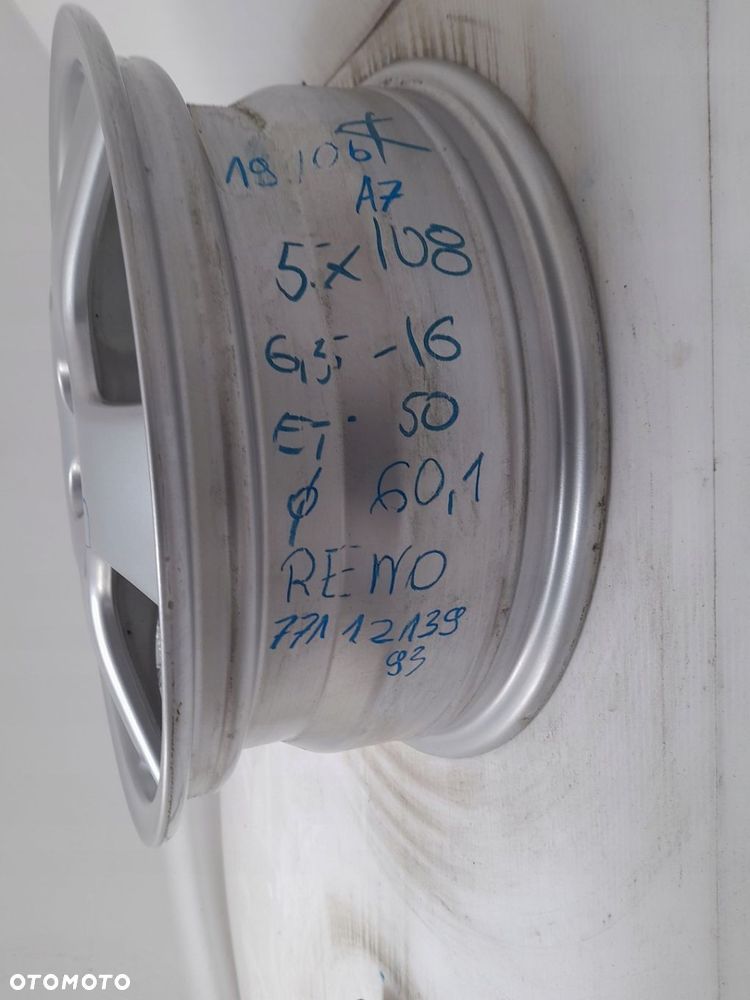 19106
A7
5x108
6,5-16
ET 50
φ 60,1
RENO
77112139
93
OTOMOTO